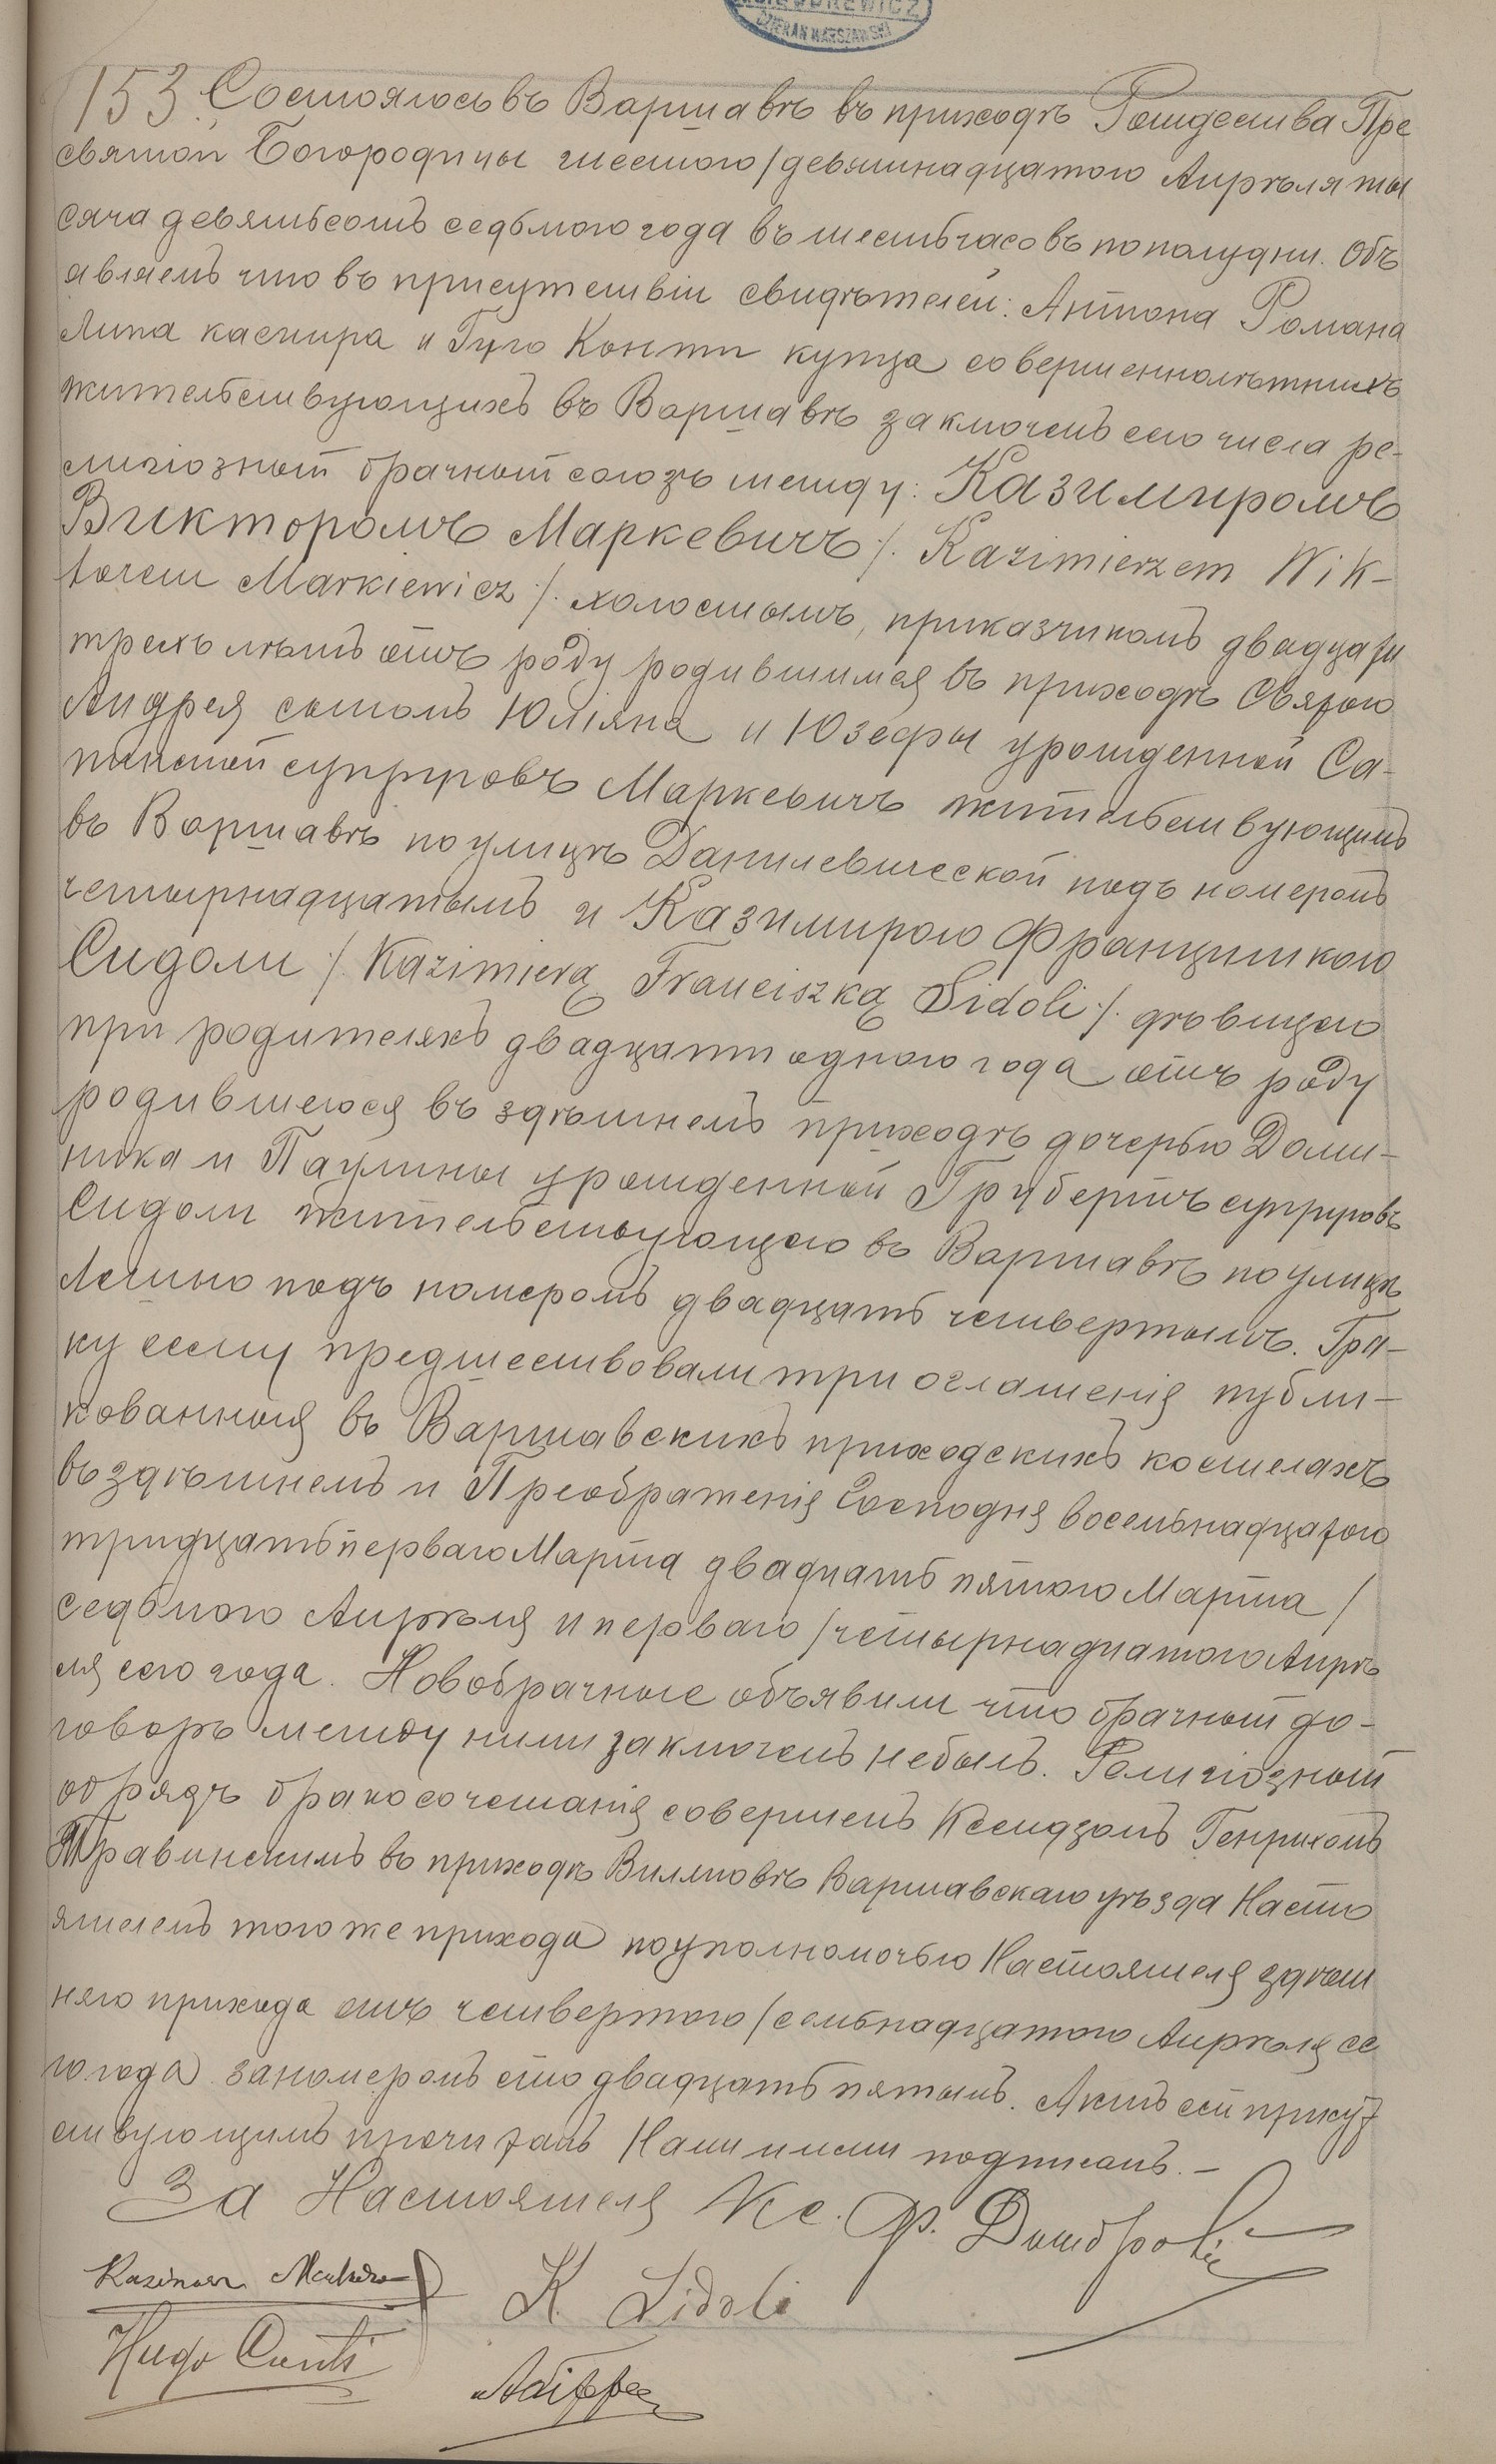 DZIEKAN WARSZAWSKI
153. Состоялось въ Варшавѣ въ приходѣ Рождества Пре
святой Богородицы шестого/девятнадцатого Апрѣля ты
сяча девятьсотъ седьмого года въ шесть часовъ пополудни. Объ
являемъ что въ присутствіи свидѣтелей: Антона Романа
Липа кассира и Гуго Конти купца совершеннолѣтнихъ
жительствующихъ въ Варшавѣ заключенъ сего числа ре-
лигіозный брачный союзъ между: Казимиромъ
Викторомъ Маркевичъ /. Kazimierzem Wik-
torem Markiewicz /. холостымъ, приказчикомъ двадцати
трехъ лѣтъ отъ роду родившимся въ приходѣ Святого
Андрея сыномъ Юліяна и Юзефы урожденной Са-
пинской супруговъ Маркевичъ жительствующимъ
въ Варшавѣ по улицѣ Данилевической подъ номеромъ
четырнадцатымъ и Казимирою Францишкою
Сидоли /. Kazimierą Franciszką Sidoli /. дѣвицею
при родителяхъ двадцати одного года отъ роду
родившеюся въ здѣшнемъ приходѣ дочерью Доми-
ника и Паулины урожденной Грубертъ супруговъ
Сидоли жительствующею въ Варшавѣ по улицѣ
Лешно подъ номеромъ двадцать четвертымъ. Бра-
ку сему предшествовали три оглашенія публи-
кованныя въ Варшавскихъ приходскихъ костелахъ
въ здѣшнемъ и Преображенія Господня восемьнадцатого
тридцать перваго Марта двадцать пятого Марта /
седьмого Апрѣля и перваго / четырнадцатого Апрѣ
ля сего года. Новобрачные объявили что брачный до-
говоръ между ними заключенъ небылъ. Религіозный
обрядъ бракосочетанія совершенъ Ксендзомъ Генрихомъ
Травинскимъ въ приходѣ Вилляновѣ Варшавскаго уѣзда Насто
ятелемъ того же прихода по уполномочью Настоятеля здѣш
няго прихода отъ четвертого / семьнадцатого Апрѣля се
го года за номеромъ сто двадцать пятымъ. Актъ сей присут
ствующимъ прочитанъ Нами и ими подписанъ. –
За Настоятеля Кс. Ф.
Kazimierz K. Sidoli
Hugo Conti